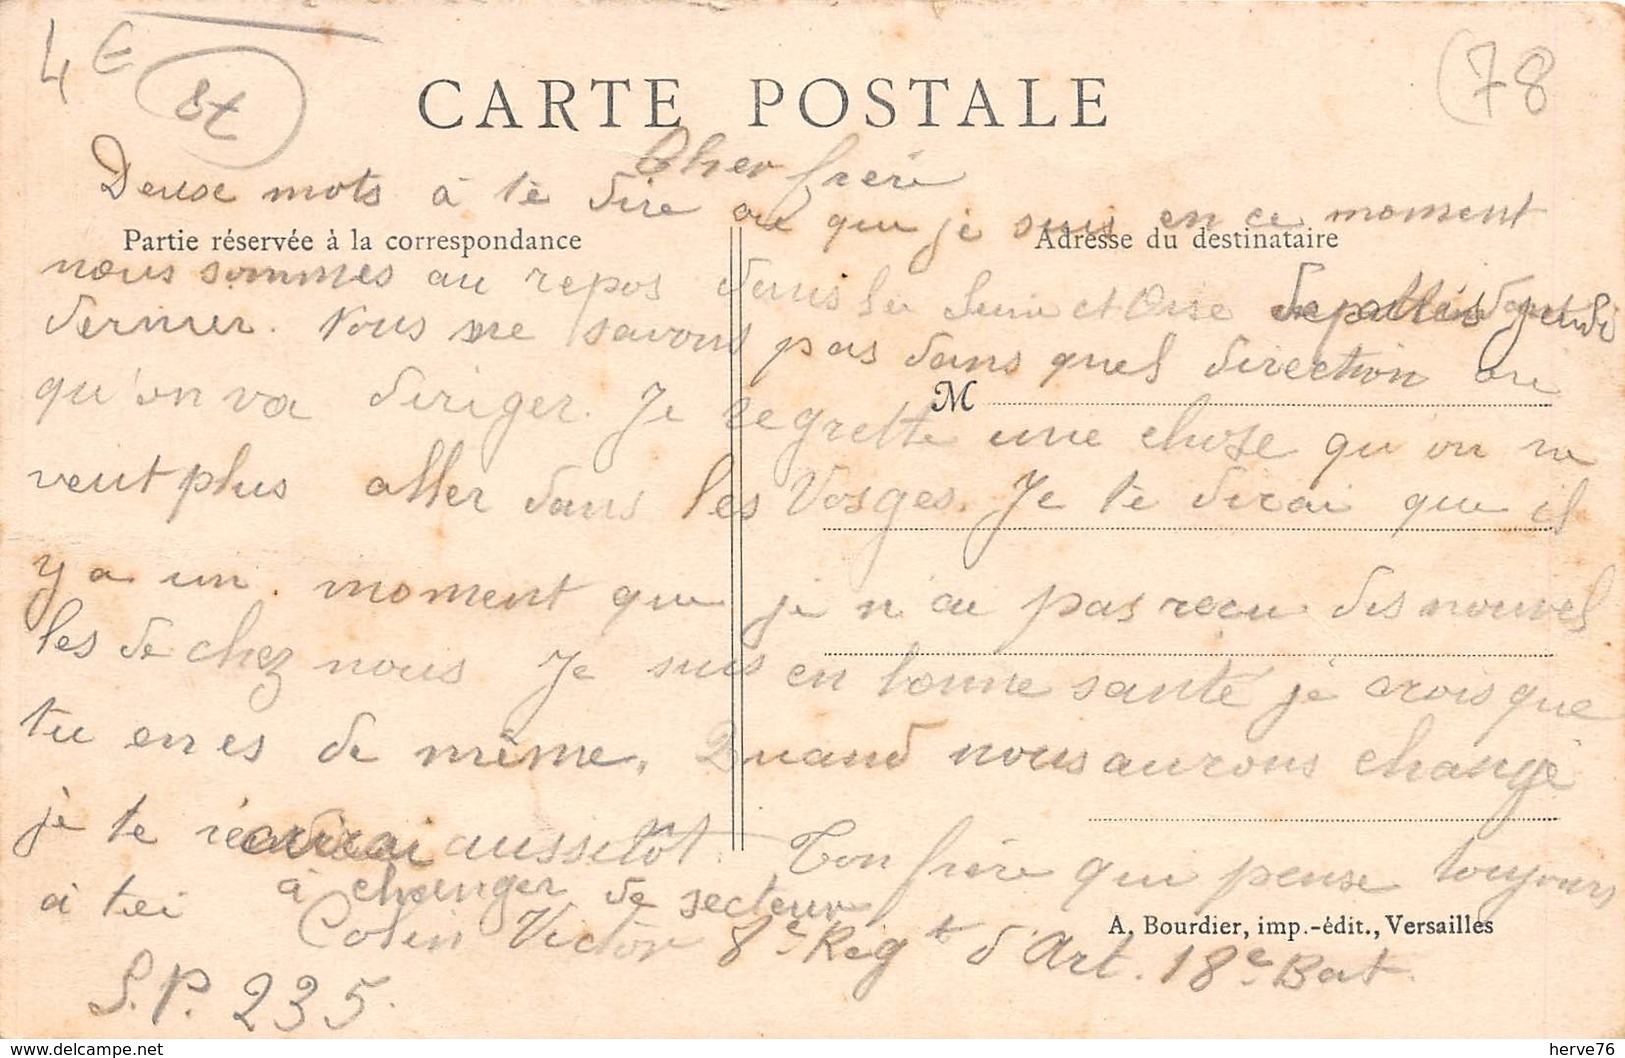 4 €
8t
(78
CARTE POSTALE
Cher frère
Deuse mots à tè dire ou que je suis en ce moment
Partie réservée à la correspondance
Adresse du destinataire
nous sommes au repos dans la Seine et Oise depuis jeudi
dernier. Nous ne savons pas dans quel direction ou
M
qu'on va diriger. Je regrette une chose qu'on ne
veut plus aller dans les Vosges. Je tè dirai que il
y a un moment que je n'ai pas recu des nouvel
les de chez nous Je suis en bonne santé je crois que
tu en es de même. Quand nous aurons changé
je te aussitôt. Ton frère qui pense toujours
à toi à changer de secteur
A. Bourdier, imp.-édit., Versailles
Colin Victor 8e Regt d'Art. 18e Bat
S.P. 235.
https://www.delcampe.net
herve76